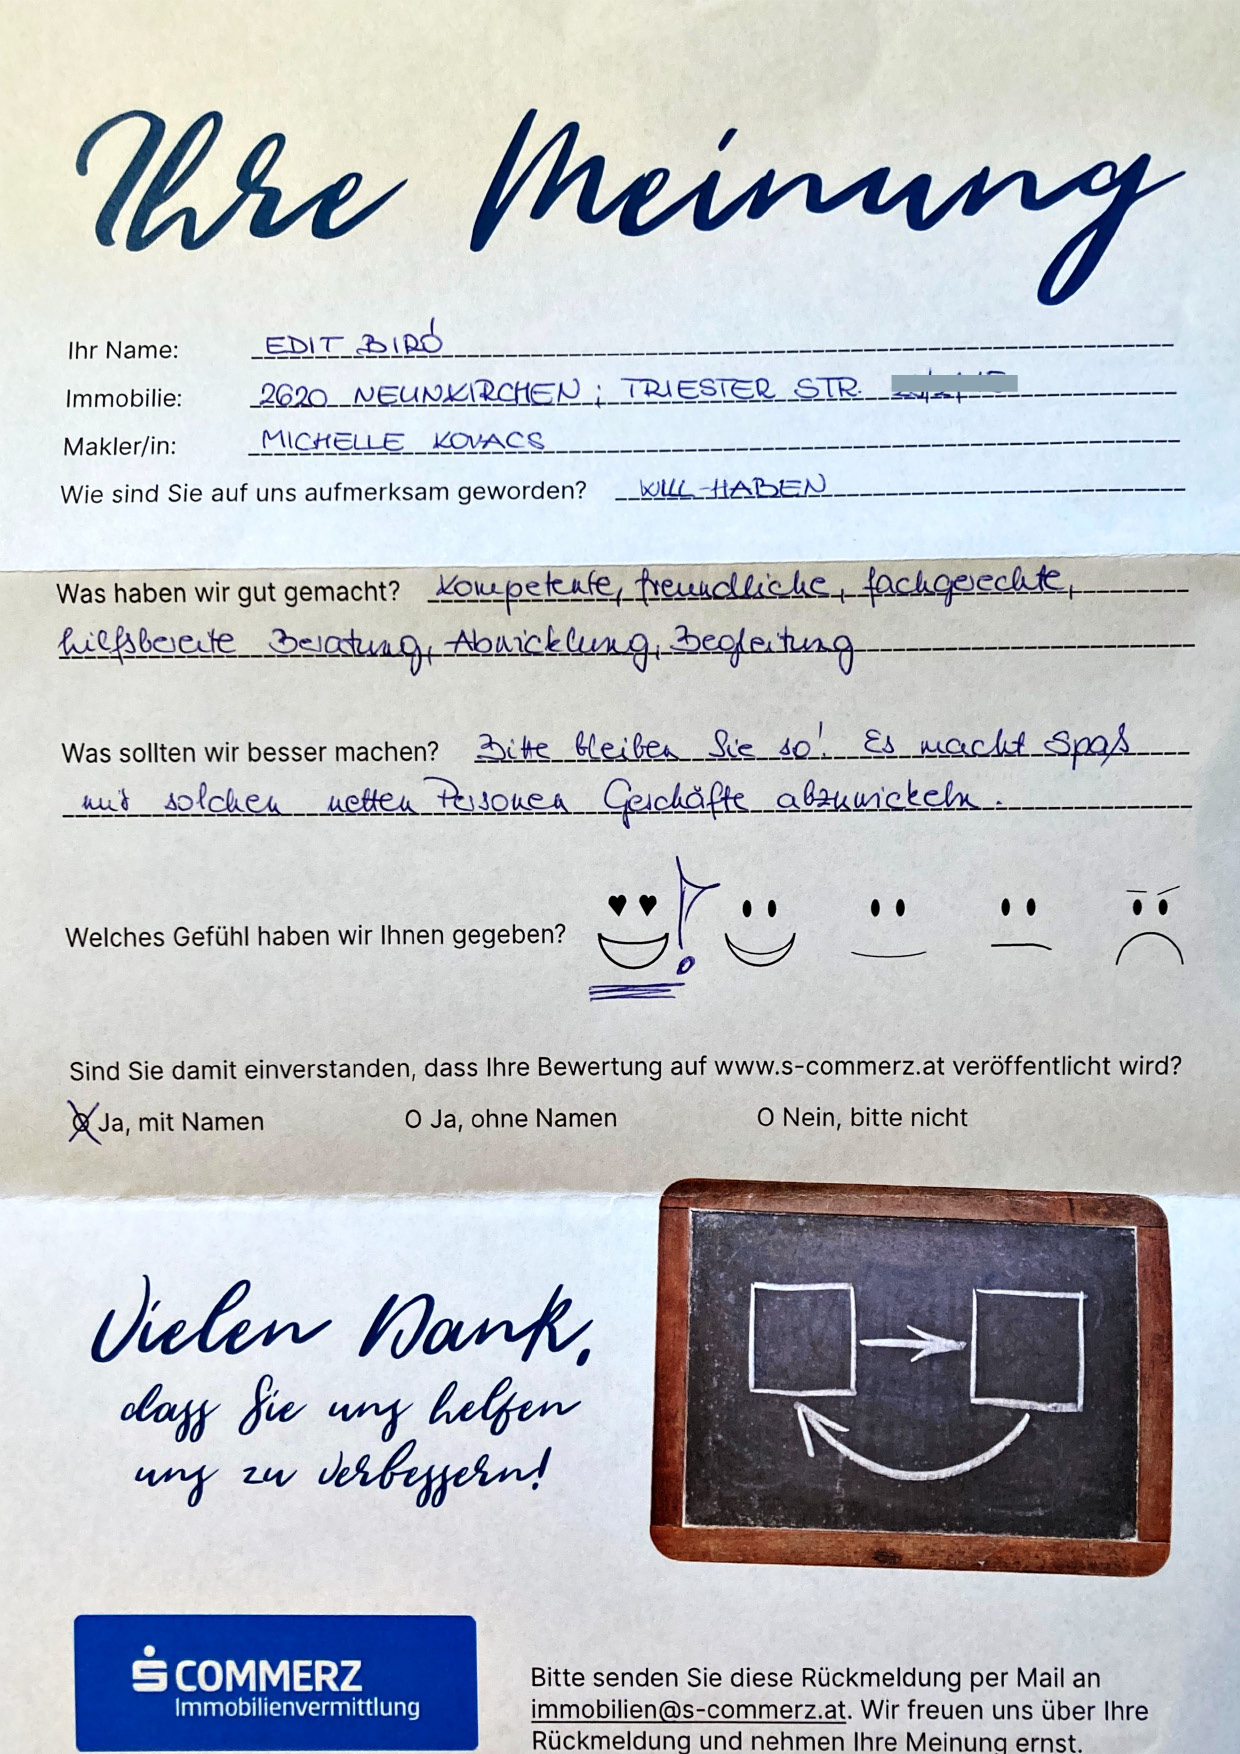 Ihre Meinung
Ihr Name: EDIT BIRÓ
Immobilie: 2620 NEUNKIRCHEN ; TRIESTER STR.
Makler/in: MICHELLE KOVACS
Wie sind Sie auf uns aufmerksam geworden? WILL-HABEN
Was haben wir gut gemacht? kompetente, freundliche, fachgerechte,
hilfsbereite Beratung, Abwicklung, Begleitung
Was sollten wir besser machen? Bitte bleiben Sie so! Es macht Spaß
mit solchen netten Personen Geschäfte abzuwickeln.
Welches Gefühl haben wir Ihnen gegeben? !
Sind Sie damit einverstanden, dass Ihre Bewertung auf www.s-commerz.at veröffentlicht wird?
X Ja, mit Namen O Ja, ohne Namen O Nein, bitte nicht
Vielen Dank,
dass Sie uns helfen
uns zu verbessern!
S COMMERZ
Immobilienvermittlung
Bitte senden Sie diese Rückmeldung per Mail an
immobilien@s-commerz.at. Wir freuen uns über Ihre
Rückmeldung und nehmen Ihre Meinung ernst.